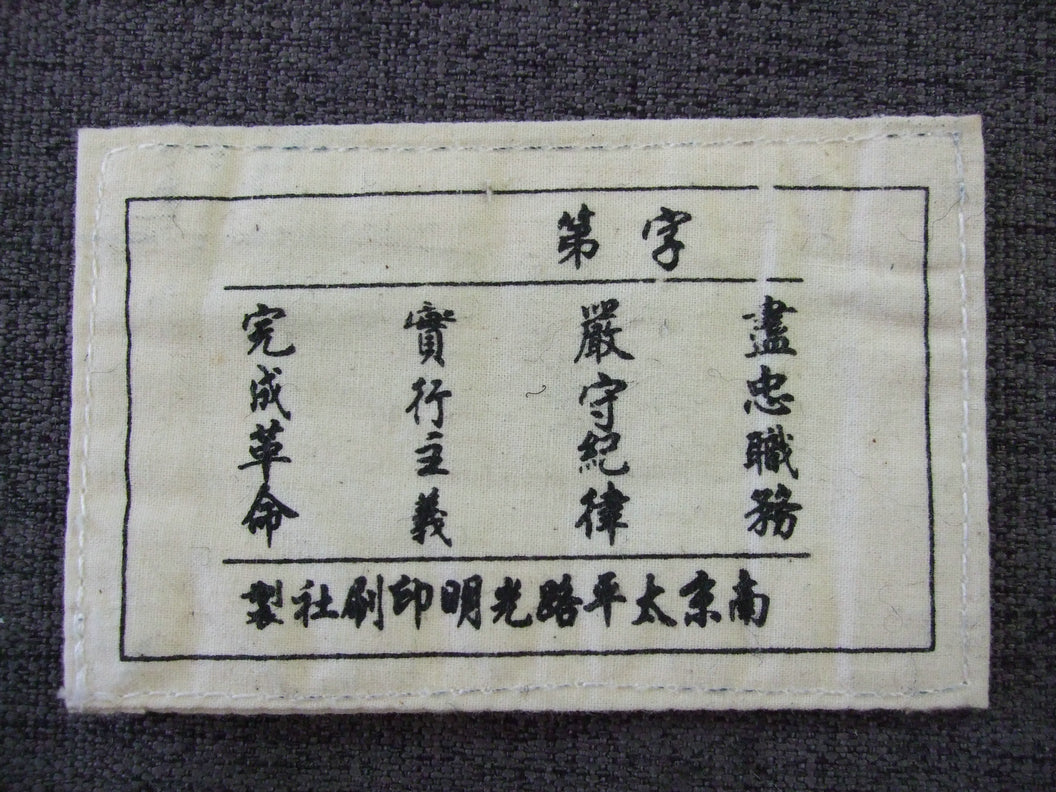 字第
盡忠職務
嚴守紀律
實行主義
完成革命
南京太平路光明印刷社製